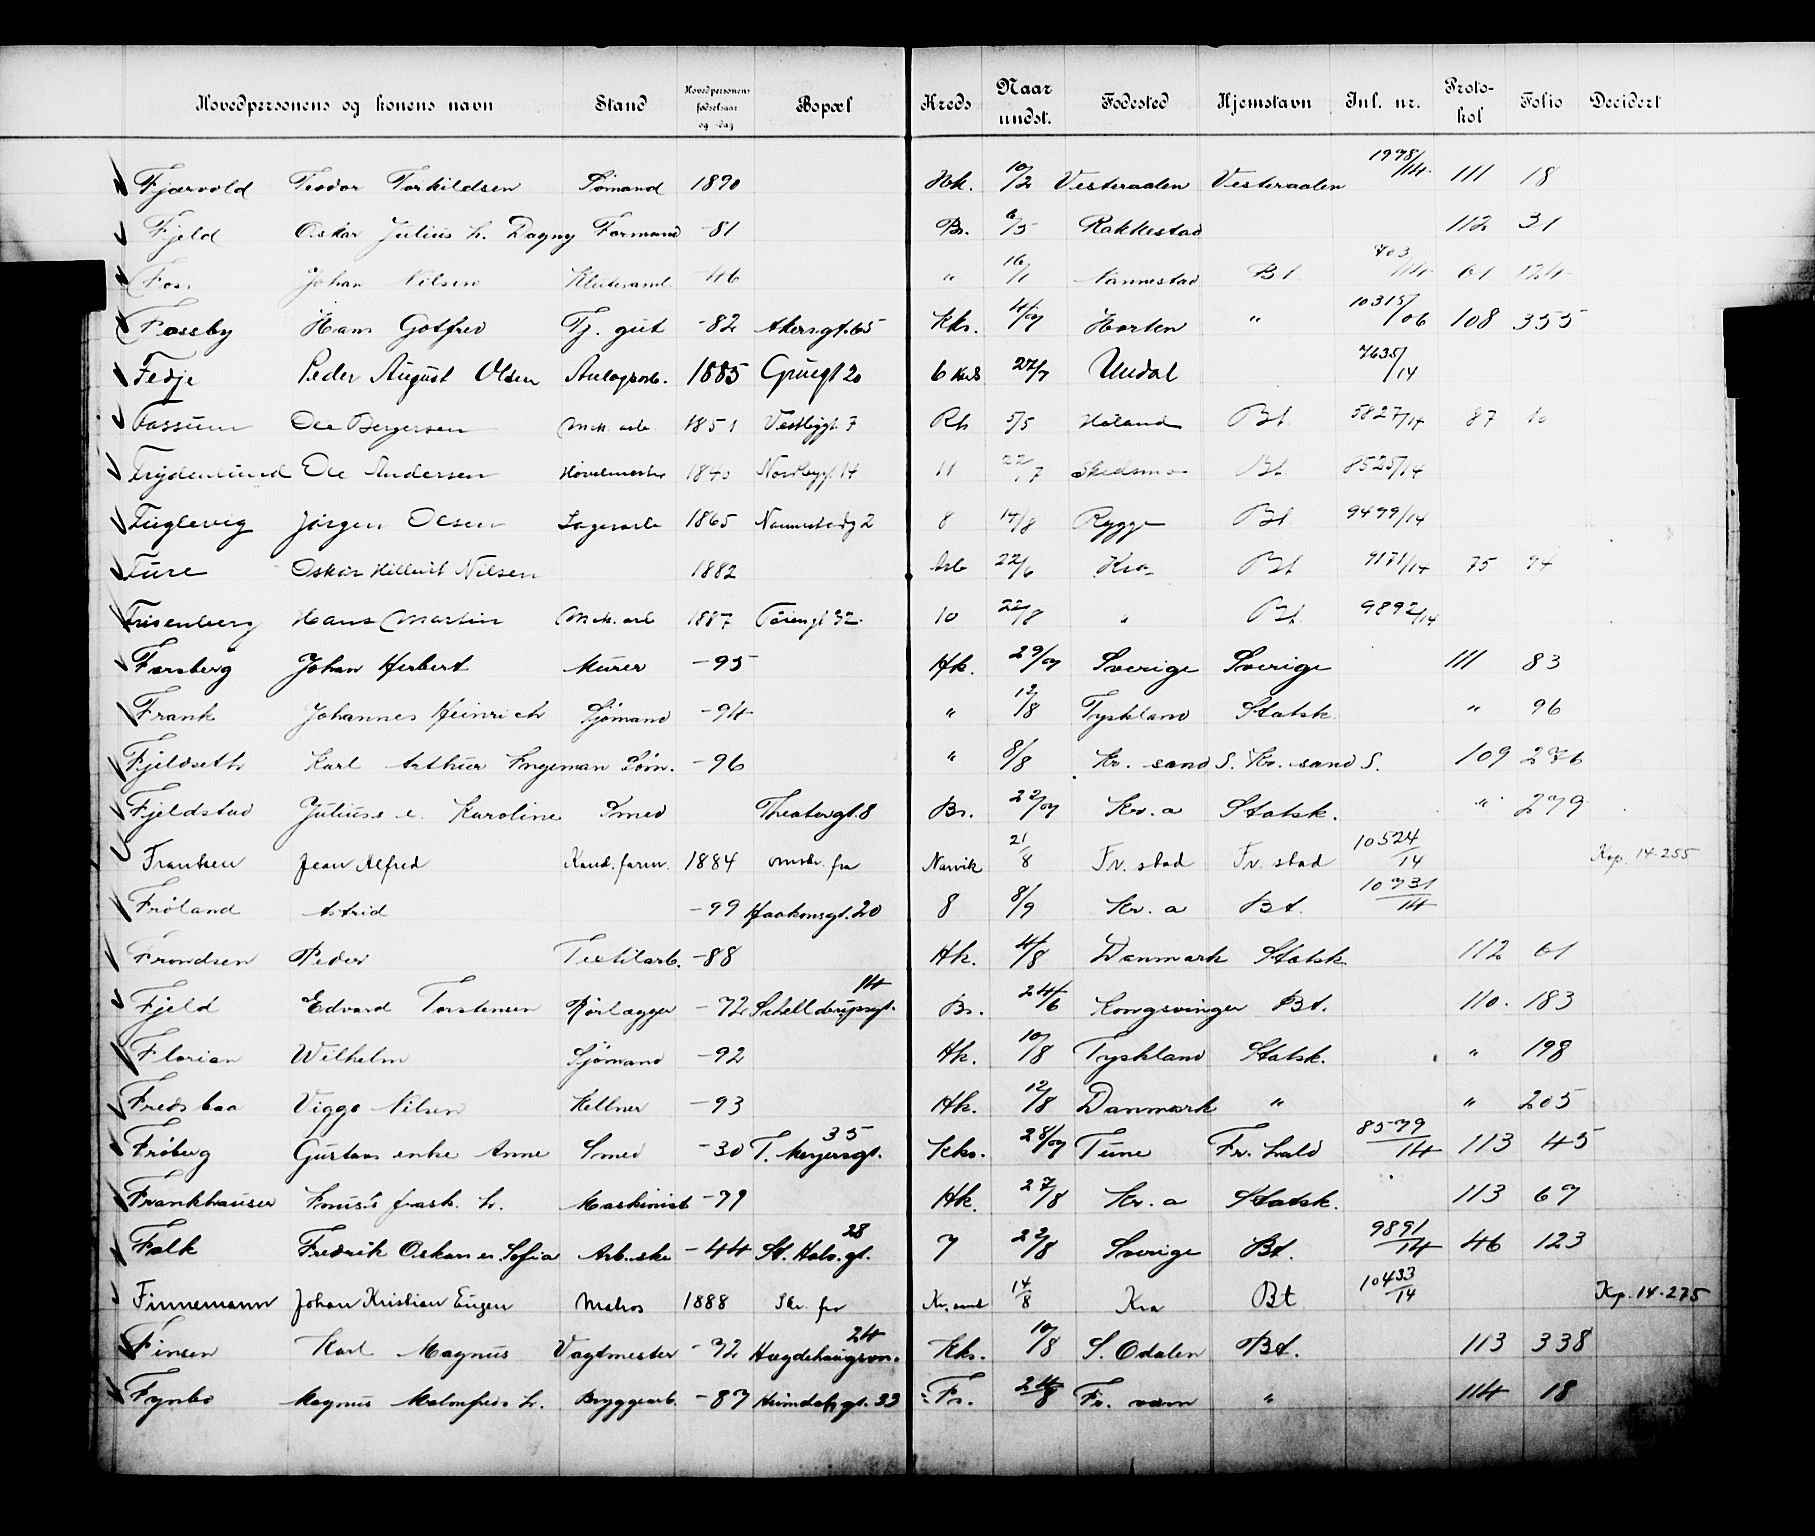 Hovedpersonens og konens navn Stand Hovedpersonens fødselsaar og -dag Bopæl Kreds Naar undst. Fødested Hjemstavn Inl. nr. Protokol Folio Decidert
Fjærvold Teodor Torkildsen Sømand 1890 Hk. 10/2 Vesteraalen Vesteraalen 1978/14 111 18
Fjeld Oskar Julius h. Dagny Formand -81 Br. 6/5 Rakkestad 112 31
Foss Johan Nilsen -46 " 16/1 Nannestad Bt. 703/14 61 124
Fossby Hans Gotfred Tj. gut -82 Akersgt. 65 Kks. 4/7 Horten " 10315/06 108 355
Fedje Peder August Olsen Anlagsarb. 1885 Gruegt 20 6 27/7 7635/14
Fossum Ole Bergersen Mek. arb. 1851 Rk 5/5 Høland Bt. 5827/14 87 10
Frydenlund Ole Andersen Høvelmester 1840 Nordbygt. 14 11 22/7 Skedsmo Bt 8525/14
Fuglevig Jørgen Olsen Lagerarb 1865 Nannestadg 2 8 14/8 Rygge Bt 9499/14
Fure Oskar Nilsen 1882 22/6 Kra Bt 9171/14 75 94
Frisenberg Hans Martin Mek. arb 1887 Tøiengt 32 10 22/8 " Bt. 9892/14
Forsberg Johan Herbert Murer -95 Hk. 29/7 Sverige Sverige 111 83
Frank Johannes Heinrich Sjømand -94 " 12/8 Tyskland Statsk. " 96
Fjeldseth Karl Arthur Ingeman Søm. -96 " 8/8 Kr. sand S. Kr. sand S. 109 276
Fjeldstad Julius e. Karoline Smed Theatergt. 8 Br. 22/7 Kr. a Statsk. " 279
Frantsen Jean Alfred Kand. farm. 1884 fra Narvik 21/8 Fr. stad Fr. stad 10524/14 Kop. 14-255
Frøland Astrid -99 Haakonsgt. 20 8 8/9 Kr. a Bt. 10731/14
Frandsen Peder Textilarb. -88 Hk. 4/8 Danmark Statsk 112 61
Fjeld Edvard Torstensen Rørlægger -72 Schelderupsgt. 14 Br. 24/6 Kongsvinger Bt. 110. 183
Florian Wilhelm Sjømand -92 Hk. 10/8 Tyskland Statsk. " 198
Fredsbaa Viggo Nilsen Kellner -93 Hk. 12/8 Danmark " " 205
Frøberg Gustavs enke Anne Smed -30 T. Meyersgt. 35 Kks. 28/7 Tune Fr. hald 8579/14 113 45
Frankhauser h. Maskinist -79 Hk. 27/8 Kr. a Statsk. 113 67
Falk Fredrik Oskar e. Sofia Arb.ske -44 St. Halv. gt. 28 7 22/8 Sverige Bt. 9891/14 46 123
Finnemann Johan Kristian Eugen Matros 1888 Skr. fra Kr. sand 14/8 Kra Bt 10433/14 Kop. 14-275
Finsen Karl Magnus Vagtmester -72 Hægdehaugsvn. 24 Kks. 10/8 S. Odalen Bt. 113 338
Fynbo Magnus Malmfreds h. Bryggearb. -87 Heimdalsgt. 33 Fr. 24/8 Fr.værn " 114 18